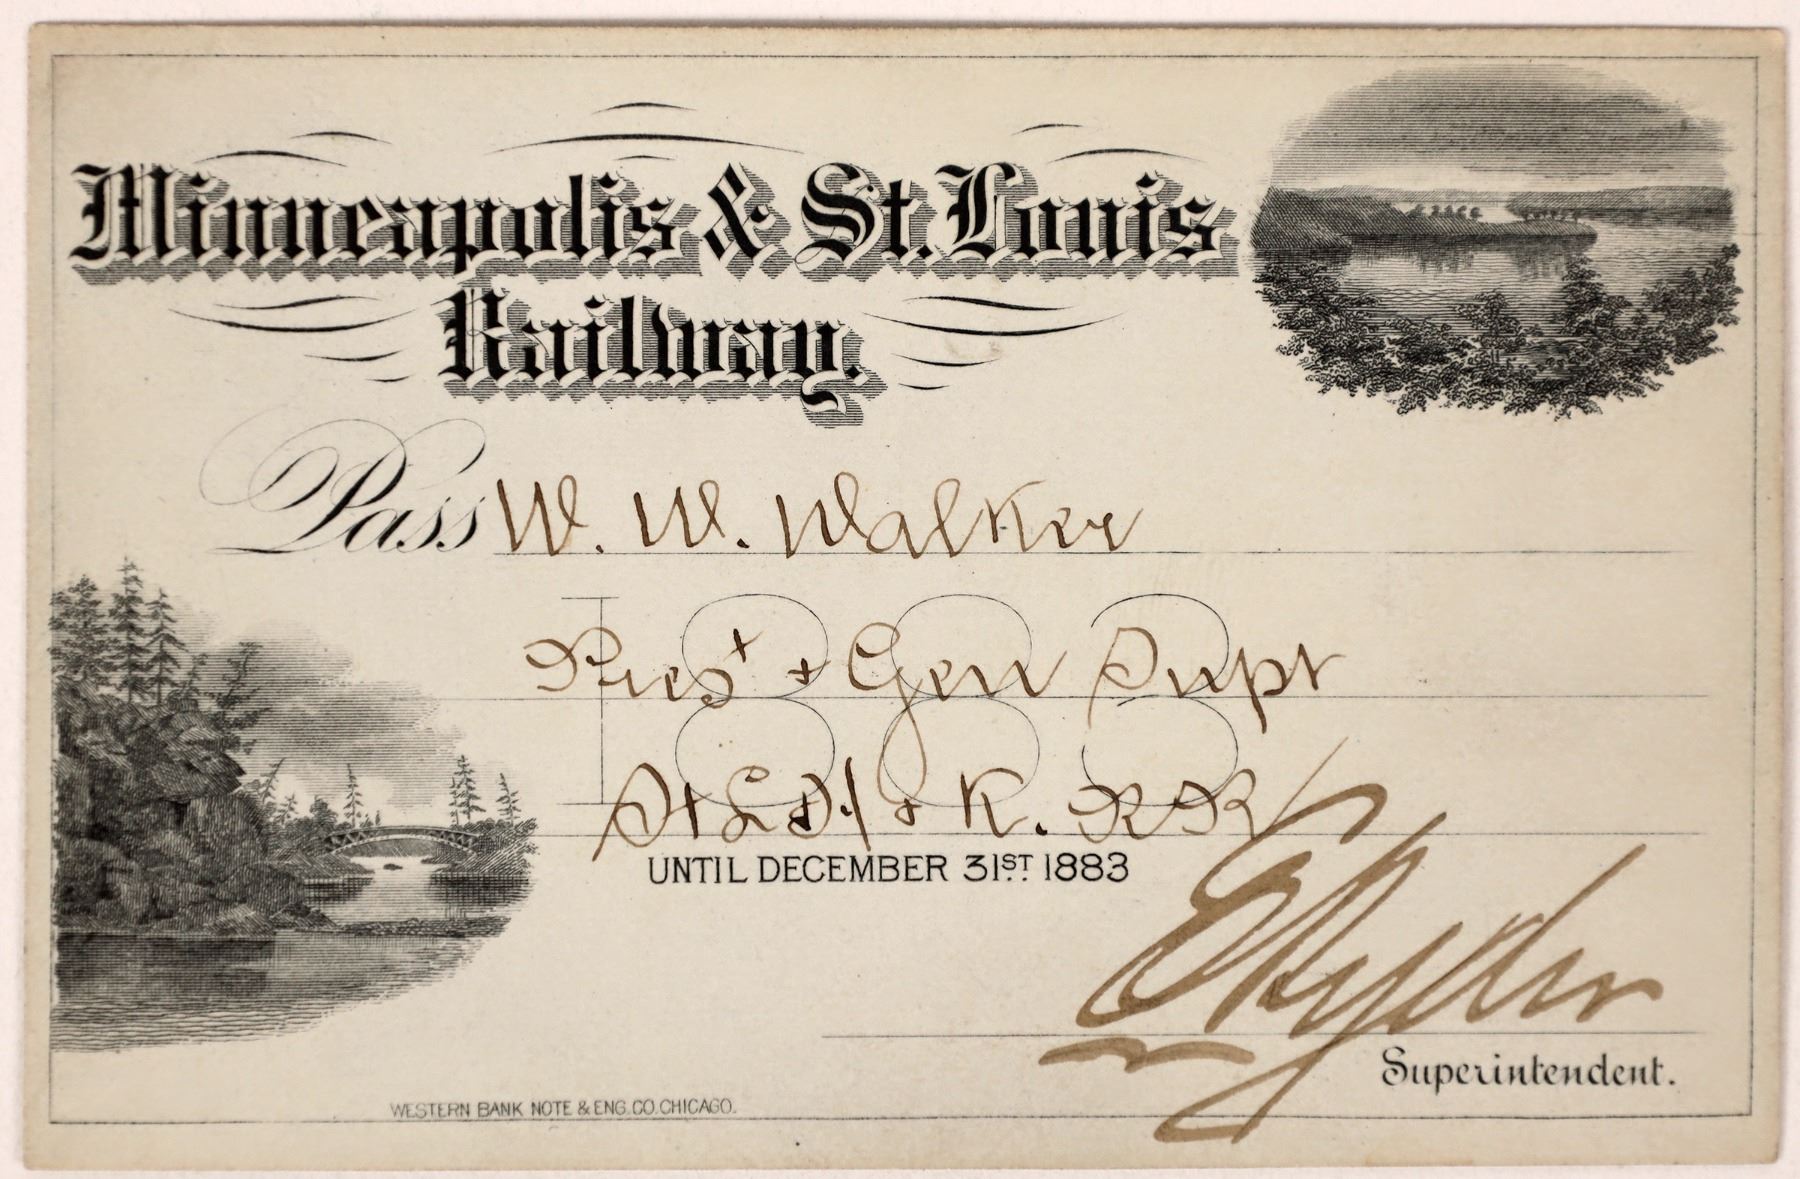 Minneapolis & St. Louis
Railway.
Pass W. W. Walker
Prest + Gen Supt
St L D M + K. RR
1883
UNTIL DECEMBER 31ST 1883
E Ryder
Superintendent.
WESTERN BANK NOTE & ENG. CO. CHICAGO.